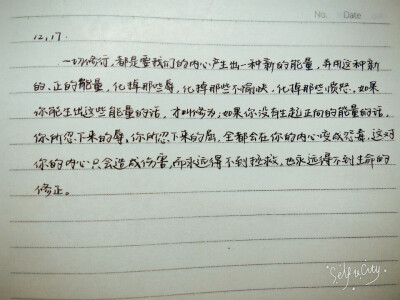 No.  Date
12,17.
一切修行，都是要我们的内心产生出一种新的能量，并用这种新
的、正的能量，化掉那些辱，化掉那些不愉快，化掉那些愤怒。如果
你能生出这些能量的话，才叫修为；如果你没有生起正向的能量的话，
你所忍下来的辱，你所忍下来的屈，全都会在你的内心变成怨毒，这对
你的内心只会造成伤害，而永远得不到拯救，也永远得不到生命的
修正。
Selfie City